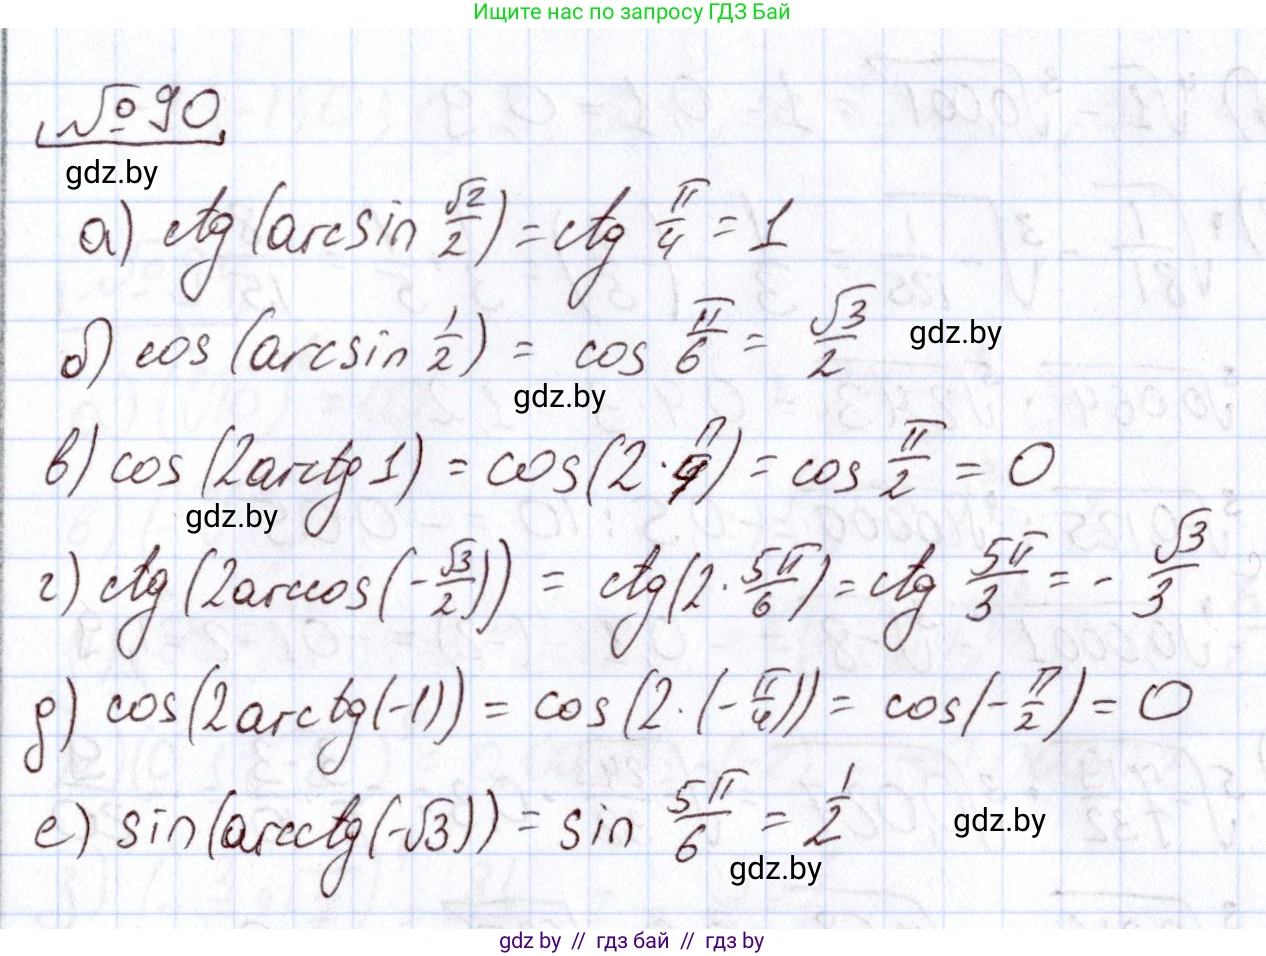 Ищите нас по запросу ГДЗ Бай
№ 90
gdz.by
а) ctg(arcsin √2/2) = ctg π/4 = 1
б) cos(arcsin 1/2) = cos π/6 = √3/2
gdz.by
gdz.by
в) cos(2arctg 1) = cos(2·π/4) = cos π/2 = 0
gdz.by
г) ctg(2arccos(-√3/2)) = ctg(2·5π/6) = ctg 5π/3 = - √3/3
д) cos(2arctg(-1)) = cos(2·(-π/4)) = cos(-π/2) = 0
е) sin(arcctg(-√3)) = sin 5π/6 = 1/2
gdz.by
gdz.by
gdz by // гдз бай // гдз by